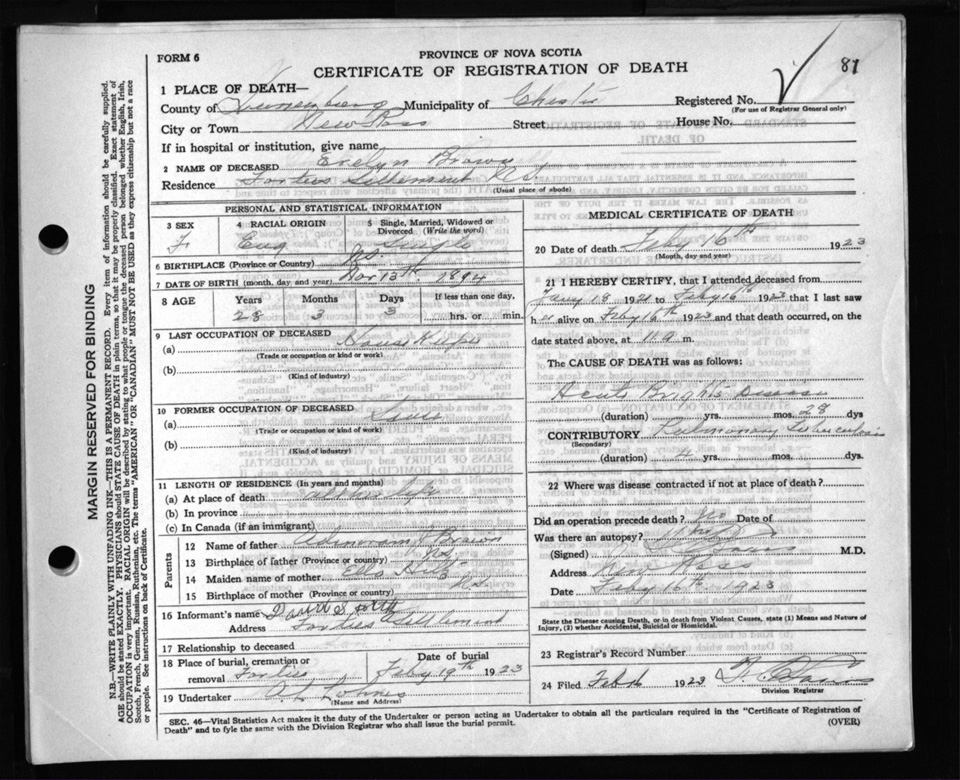 81
FORM 6
PROVINCE OF NOVA SCOTIA
CERTIFICATE OF REGISTRATION OF DEATH
1 PLACE OF DEATH—
County of Lunenburg Municipality of Chester Registered No.
(For use of Registrar General only)
City or Town New Ross Street House No.
If in hospital or institution, give name
2 NAME OF DECEASED Evelyn Brown
Residence Forties Settlement N.S.
(Usual place of abode)
PERSONAL AND STATISTICAL INFORMATION
3 SEX 4 RACIAL ORIGIN 5 Single, Married, Widowed or Divorced (Write the word)
F Eng Single
6 BIRTHPLACE (Province or Country) N.S.
7 DATE OF BIRTH (month, day and year) Nov 13th 1894
8 AGE Years Months Days If less than one day,
28 3 3 hrs. or min.
9 LAST OCCUPATION OF DECEASED
(a) House Keeper
(Trade or occupation or kind or work)
(b)
(Kind of industry)
10 FORMER OCCUPATION OF DECEASED
(a)
(Trade or occupation or kind of work)
(b)
(Kind of industry)
11 LENGTH OF RESIDENCE (In years and months)
(a) At place of death all her life
(b) In province
(c) In Canada (if an immigrant)
Parents
12 Name of father Brown
13 Birthplace of father (Province or country) N.S.
14 Maiden name of mother
15 Birthplace of mother (Province or Country) N.S.
16 Informant's name David
Address Forties Settlement
17 Relationship to deceased
18 Place of burial, cremation or removal Date of burial
Forties Feby 19th 1923
19 Undertaker
(Name and Address)
MEDICAL CERTIFICATE OF DEATH
20 Date of death Feby 16th 1923
(Month, day and year)
21 I HEREBY CERTIFY, that I attended deceased from
Jany 19 1921 to Feby 16th 1923 that I last saw
h alive on Feby 16th 1923 and that death occurred, on the
date stated above, at 11 a m.
The CAUSE OF DEATH was as follows:
Acute Bright's Disease
(duration) yrs. mos. 28 dys
CONTRIBUTORY Pulmonary Tuberculosis
(Secondary)
(duration) yrs. mos. dys.
22 Where was disease contracted if not at place of death?
Did an operation precede death? No Date of
Was there an autopsy? No
(Signed) M.D.
Address New Ross
Date Feby 16th 1923
State the Disease causing Death, or in death from Violent Causes, state (1) Means and Nature of Injury, (2) whether Accidental, Suicidal or Homicidal.
23 Registrar's Record Number
24 Filed Feb 1923
Division Registrar
SEC. 46—Vital Statistics Act makes it the duty of the Undertaker or person acting as Undertaker to obtain all the particulars required in the "Certificate of Registration of
Death" and to fyle the same with the Division Registrar who shall issue the burial permit. (OVER)
MARGIN RESERVED FOR BINDING
N.B.—WRITE PLAINLY WITH UNFADING INK—THIS IS A PERMANENT RECORD. Every item of information should be carefully supplied.
AGE should be stated EXACTLY. PHYSICIANS should STATE CAUSE OF DEATH in plain terms, so that it may be properly classified. Exact statement of
OCCUPATION is very important. RACIAL ORIGIN will be described by stating to what people or tongue the deceased person belonged whether English, Irish,
Scotch, French, German, Russian, Ruthenian, etc. The terms "AMERICAN" OR "CANADIAN" MUST NOT BE USED as they express citizenship but not a race
or people. See instructions on back of Certificate.